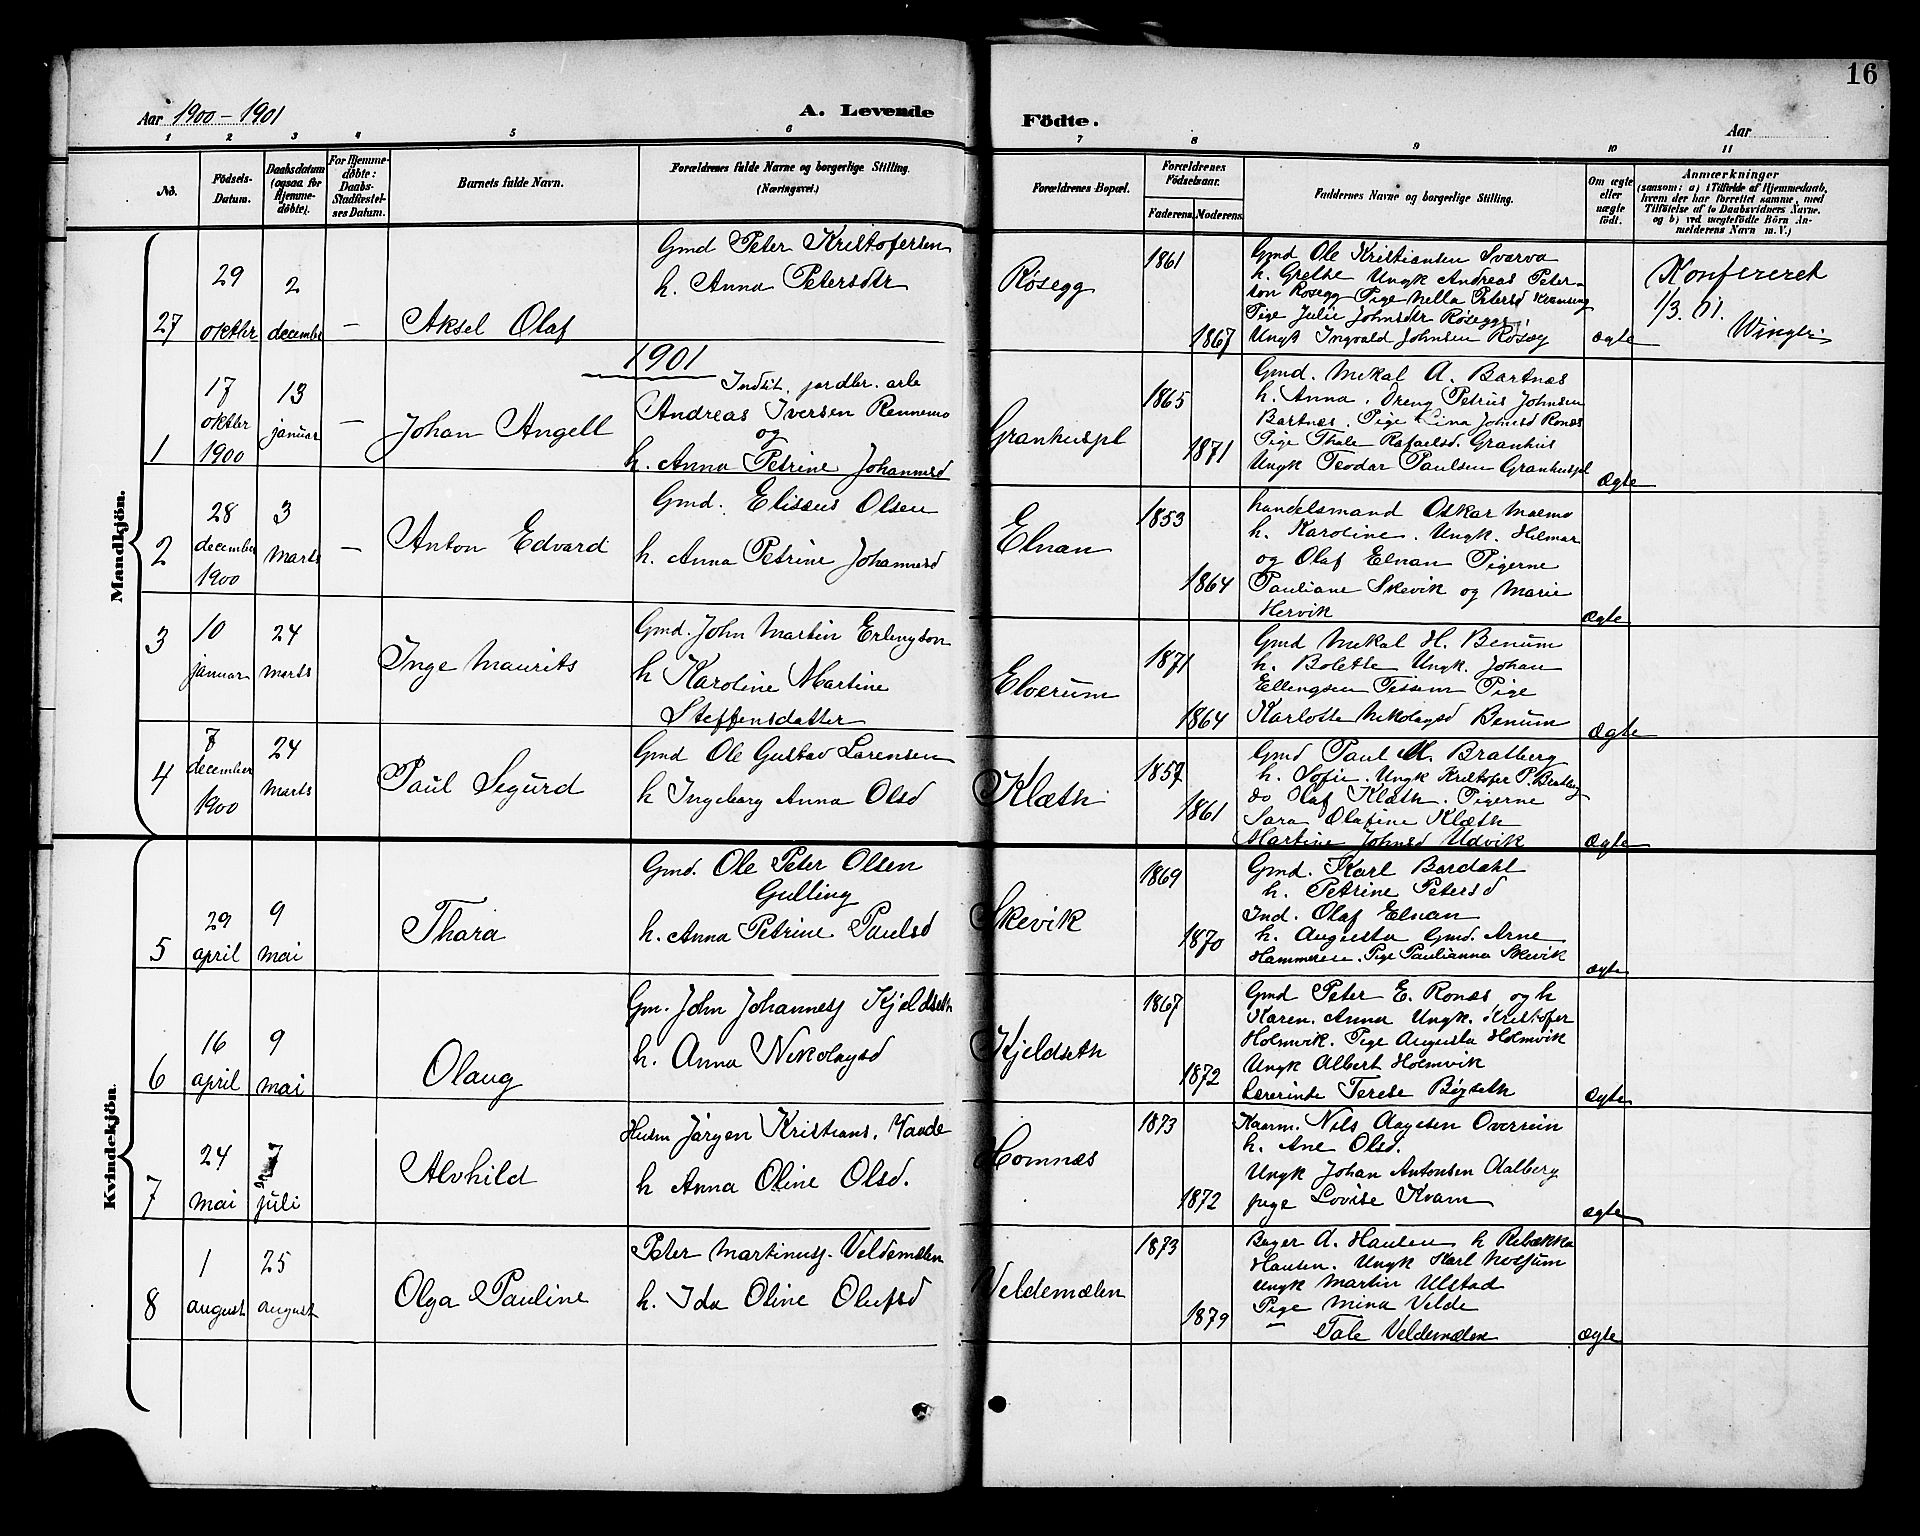 16
Aar 1900-1901
A. Levende Födte.
Aar
1 2 3 4 5 6 7 8 9 10 11
No.
Födsels-Datum.
Daabsdatum (ogsaa for Hjemmedøbte).
For Hjemmedøbte: Daabs-Stadfæstelses Datum.
Barnets fulde Navn.
Forældrenes fulde Navne og borgerlige Stilling. (Næringsvei.)
Forældrenes Bopæl.
Forældrenes Födselsaar.
Faderens. Moderens.
Faddernes Navne og borgerlige Stilling.
Om ægte eller uægte födt.
Anmærkninger
(saasom: a) i Tilfælde af Hjemmedaab, hvem der har forrettet samme, med Tilföielse af to Daabsvidners Navne, og b) ved uægtefödte Börn Anmelderens Navn m. V.)
Mandkjön.
27
29 oktbr
2 december
—
Aksel Olaf
Gmd Peter Kristofersen
h. Anna Petersdtr
Røsegg
1861
1867
Gmd Ole Kristiansen Svarva
h. Grethe Ungk Andreas Peter-
sen Røsegg Pige Nella Petersd
Pige Julie Johnsdtr Røsegg
Ungk Ingvald Johnsen Røseg
ægte
Konfereret
1/3. 01.
1901
1
17 oktbr 1900
13 januar
—
Johan Angell
Indst. jordbr. arb
Andreas Iversen Rennemo
og
h. Anna Petrine Johannesd
Granhuspl
1865
1871
Gmd. Mekal A. Bartnæs
h. Anna. Dreng Petrus Johnsen
Bartnæs. Pige Lina Johnsd Ronæs
Pige Thale Rafaelsd. Granhus
Ungk Teodor Paulsen Granhuspl
Ægte
2
28 december 1900
3 Marts
—
Anton Edvard
Gmd. Elisæus Olsen
h. Anna Petrine Johannesd
Elnan
1853
1864
handelsmand Oskar Malmo
h. Karoline. Ungk. Hilmar
og Olaf Elnan Pigerne
Pauliane Skevik og Marie
Hervik
ægte
3
10 januar
24 marts
Inge Maurits
Gmd. John Martin Erlingson
h Karoline Martine
Steffensdatter
Elverum
1871
1864
Gmd Mekal H. Benum
h. Bolette Ungk. Johan
Ellengsen Tessem Pige
Karlotte Nekolaysd Benum
Ægte
4
7 december 1900
24 marts
Paul Segurd
Gmd Ole Gustav Lorensen
h Ingeborg Anna Olsd
Klæth
1857
1861
Gmd Paul M. Bratberg
h. Sofie. Ungk Kristofer P. Bratberg
do Olaf Klæth. Pigerne
Sara Olafine Klæth
Martine Johnsd Udvik
ægte
Kvindekjön
5
29 april
9 mai
Thora
Gmd. Ole Peter Olsen
Gulling
h. Anna Petrine Paulsd
Skevik
1869
1870
Gmd. Karl Bardahl
h. Petrine Petersd
Ind. Olaf Elnan
h. Augusta Gmd. Arne
Hammerese. Pige Paulianna Skevik
ægte
6
16 april
9 mai
Olaug
Gm. John Johannesj Kjeldseth
h. Anna Nekolaysd
Kjeldseth
1867
1872
Gmd Peter E. Ronæs, og h
Karen. Anna Ungk. Kristofer
Holmvik. Pige Augusta Holmvik
Ungk Albert Holmvik
Lærerinde Terese Bøyseth
Ægte
7
24 mai
7 juli
Alvhild
Husm Jørgen Kristians. Vaade
h Anna Oline Olsd.
Homnæs
1873
1872
Kaarm. Nils Aagesen Overrein
h. Ane Olsd.
Ungk Johan Antonsen Aalberg
pige Lovise Kvam
ægte
8
1 august
25 august
Olga Pauline
Peter Martinusj. Veldemælen
h. Ida Oline Olufsd
Veldemælen
1873
1879
Bager A. Hansen h Rebækka
Hansen. Ungk Karl
Ungk Martin Ulstad
Pige Mina Velde
— Tale Veldemælen
ægte